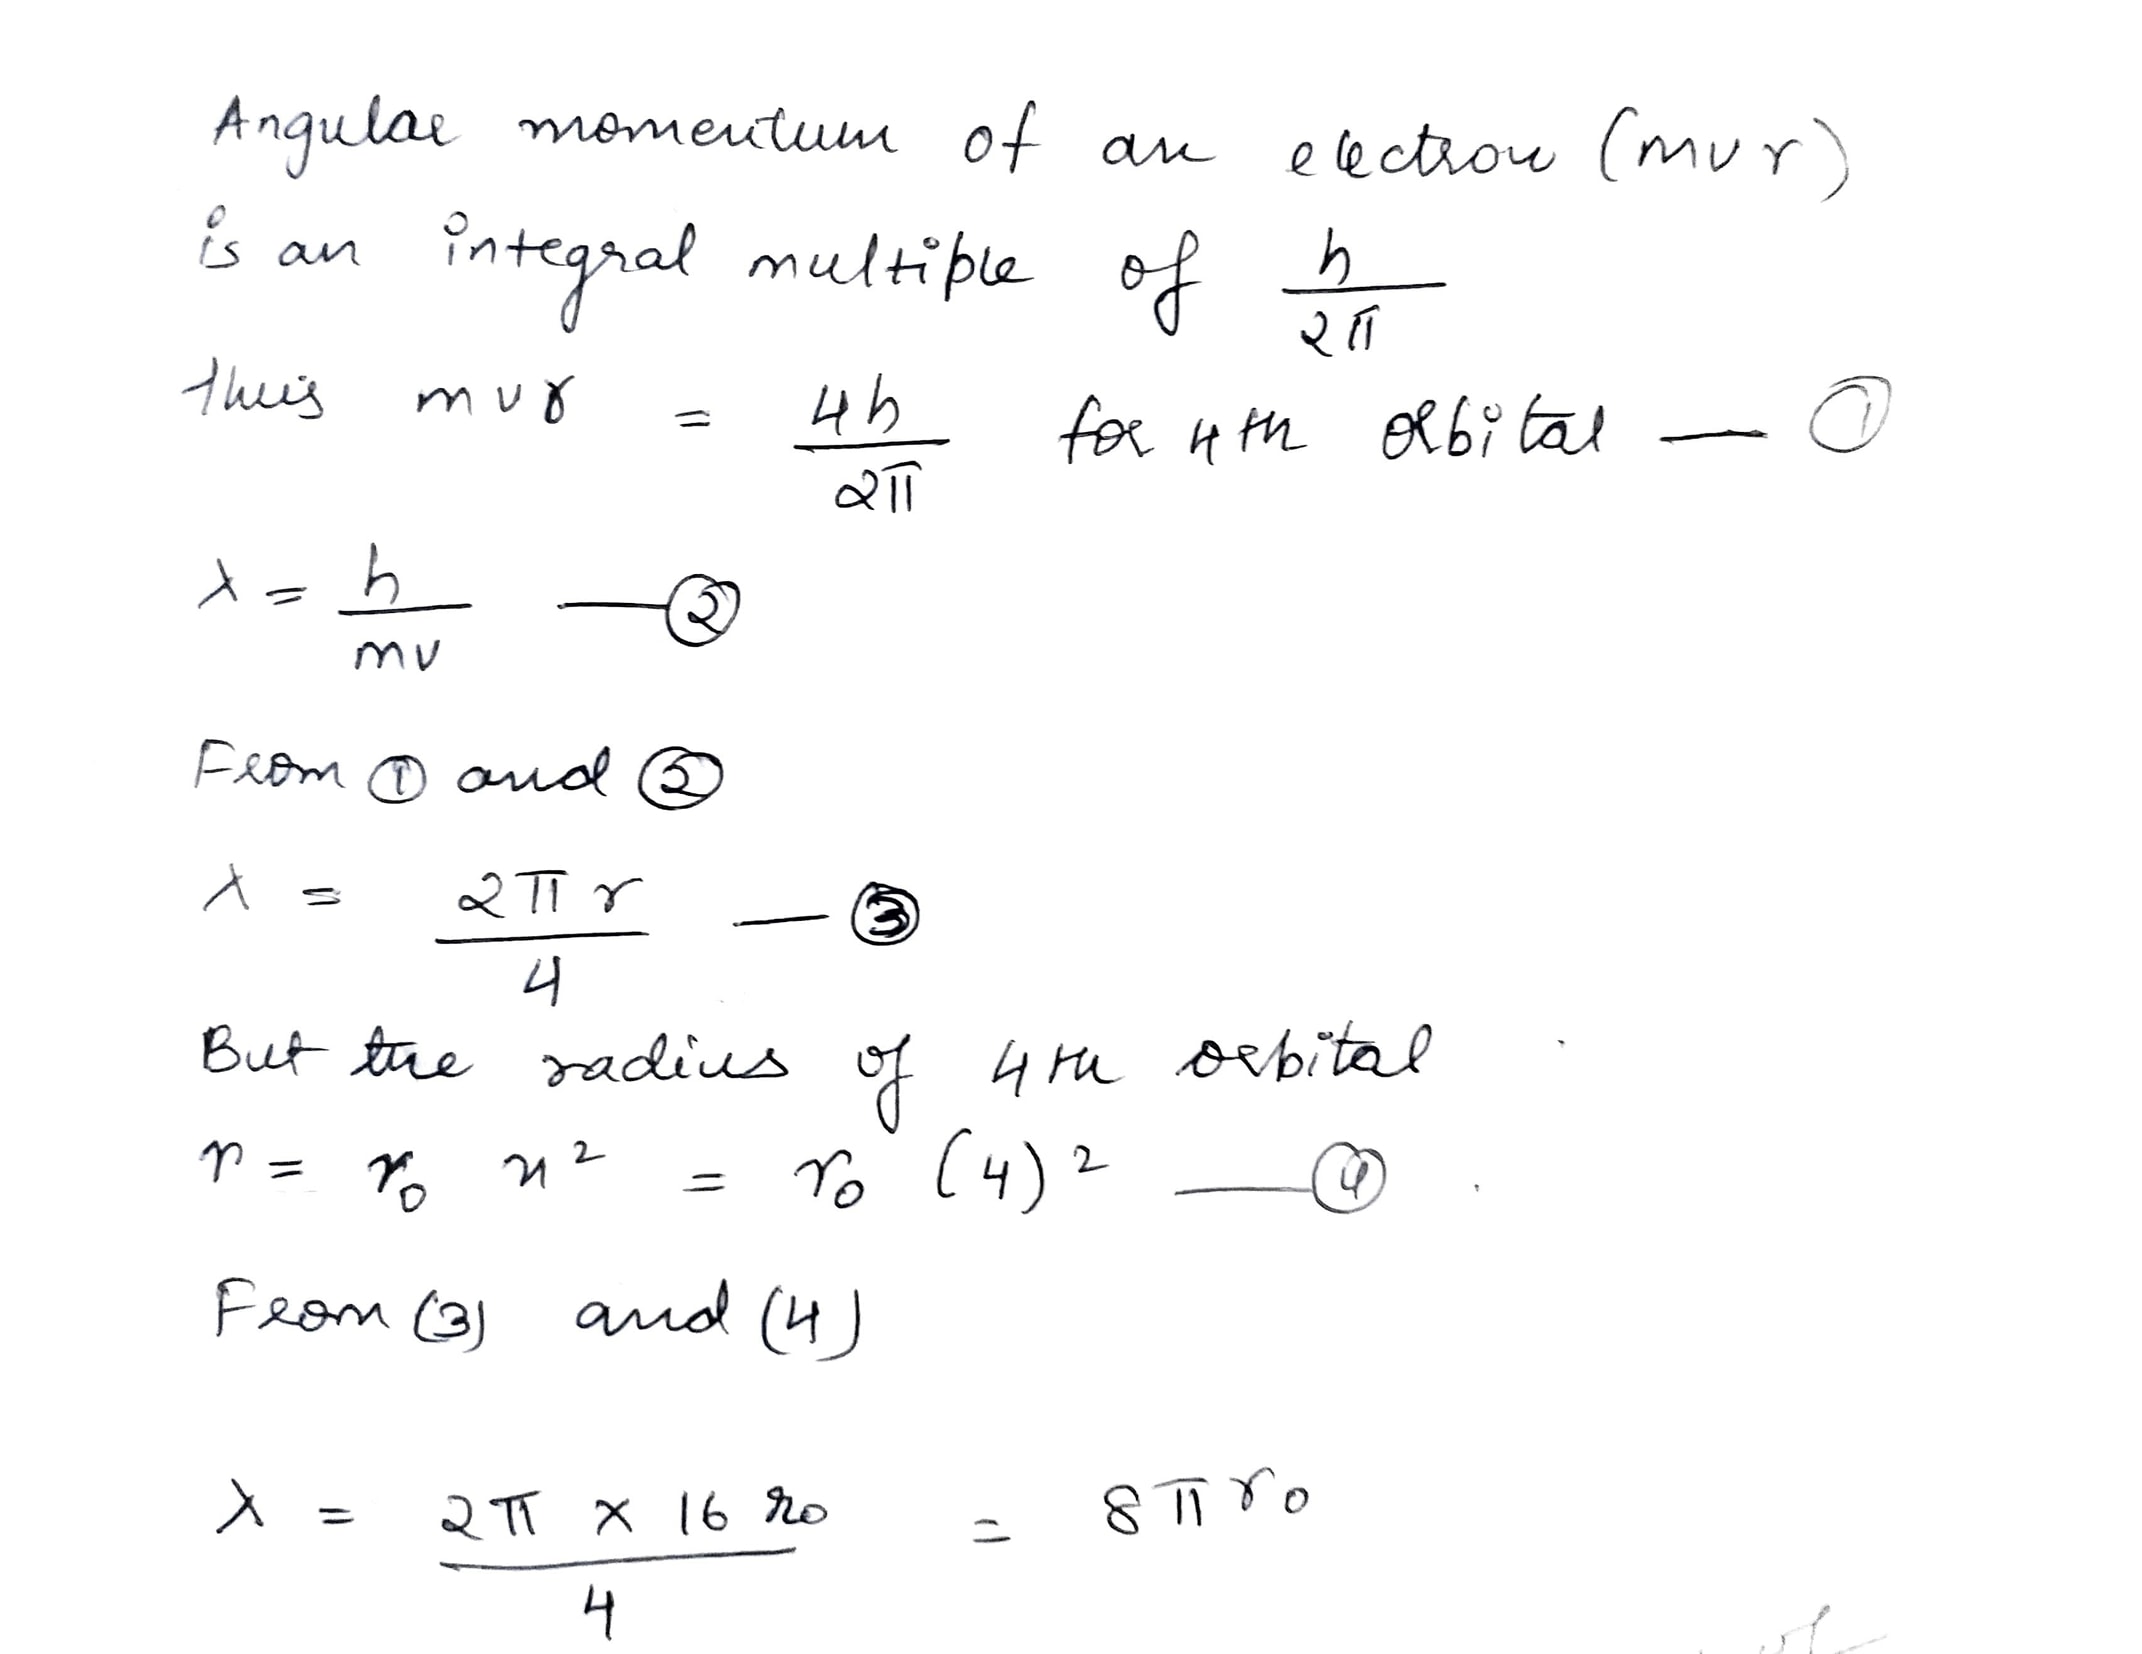 Angular momentum of an electron (mvr)
is an integral multiple of h/2π
thus mvr = 4h/2π for 4th orbital — ①
λ = h/mv — ②
From ① and ②
λ = 2πr/4 — ③
But the radius of 4th orbital
r = r₀ n² = r₀ (4)² — ④
From (3) and (4)
λ = 2π × 16 r₀/4 = 8πr₀